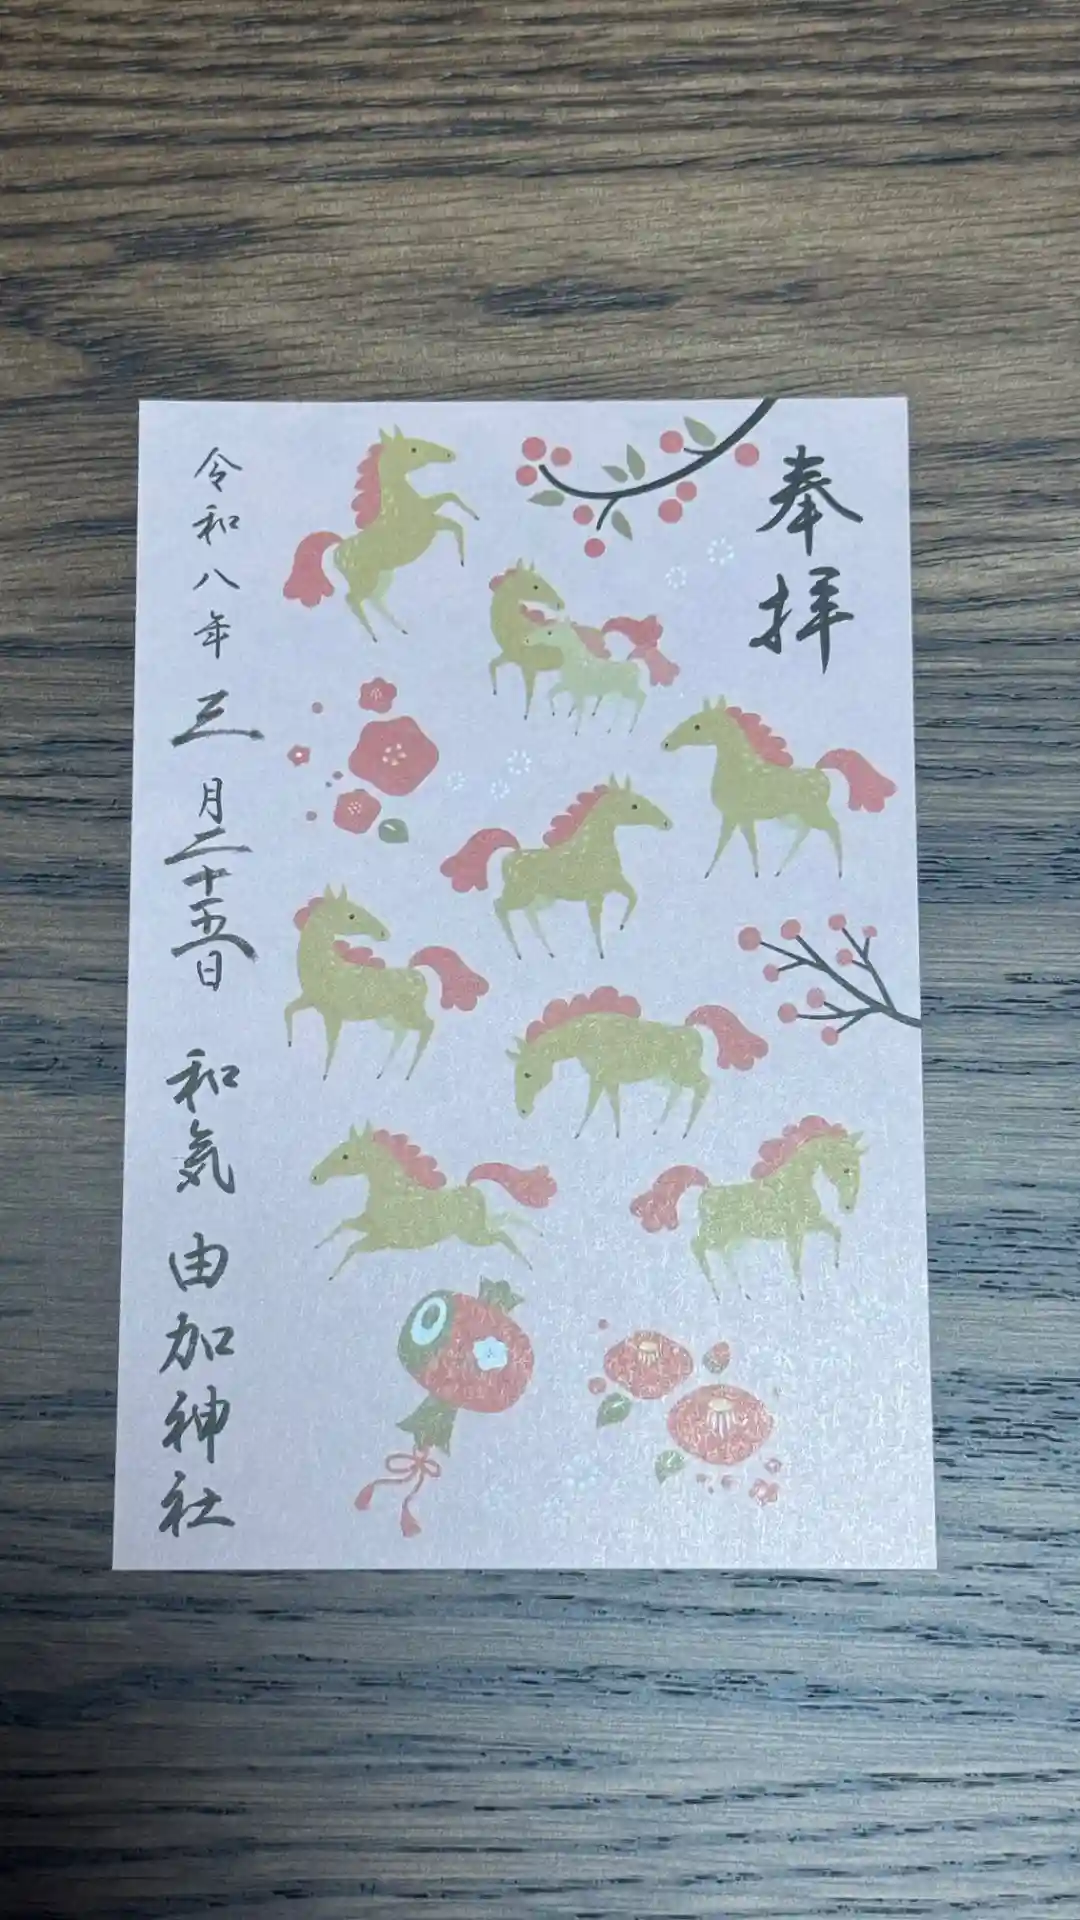 奉拝
令和八年三月二十五日 和気由加神社